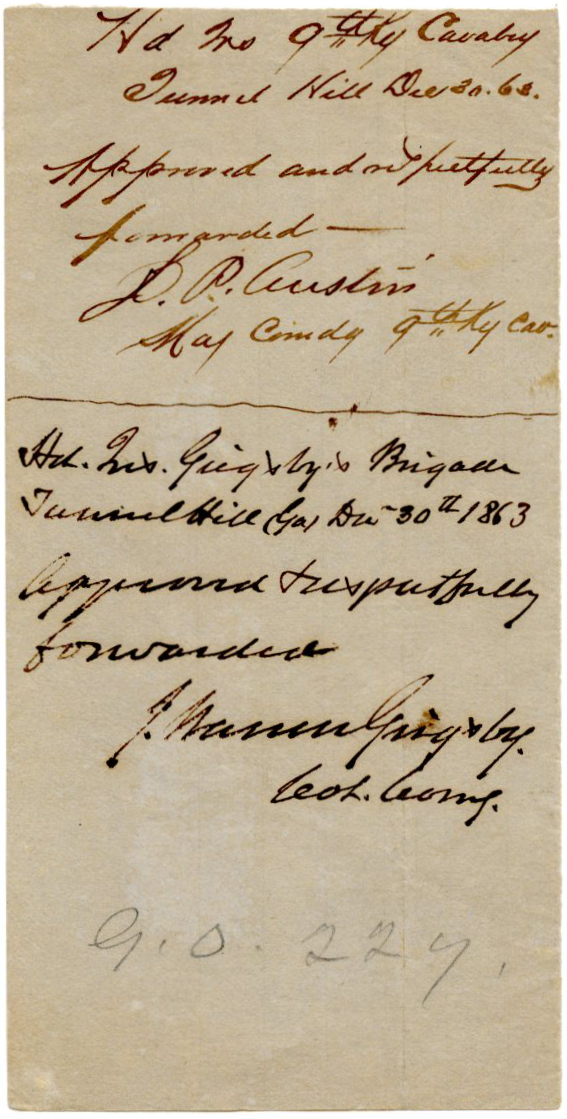 Hd Qrs 9th Ky Cavalry
Tunnel Hill Dec 30. 63.
Approved and respectfully
forwarded —
J. P. Austin
Maj Comdg 9th Ky Cav.
Hd. Qrs. Grigsby's Brigade
Tunnel Hill Ga, Dec 30th 1863
Approved & respectfully
forwarded
J. Warren Grigsby.
Col. Comg.
G. O. 227.